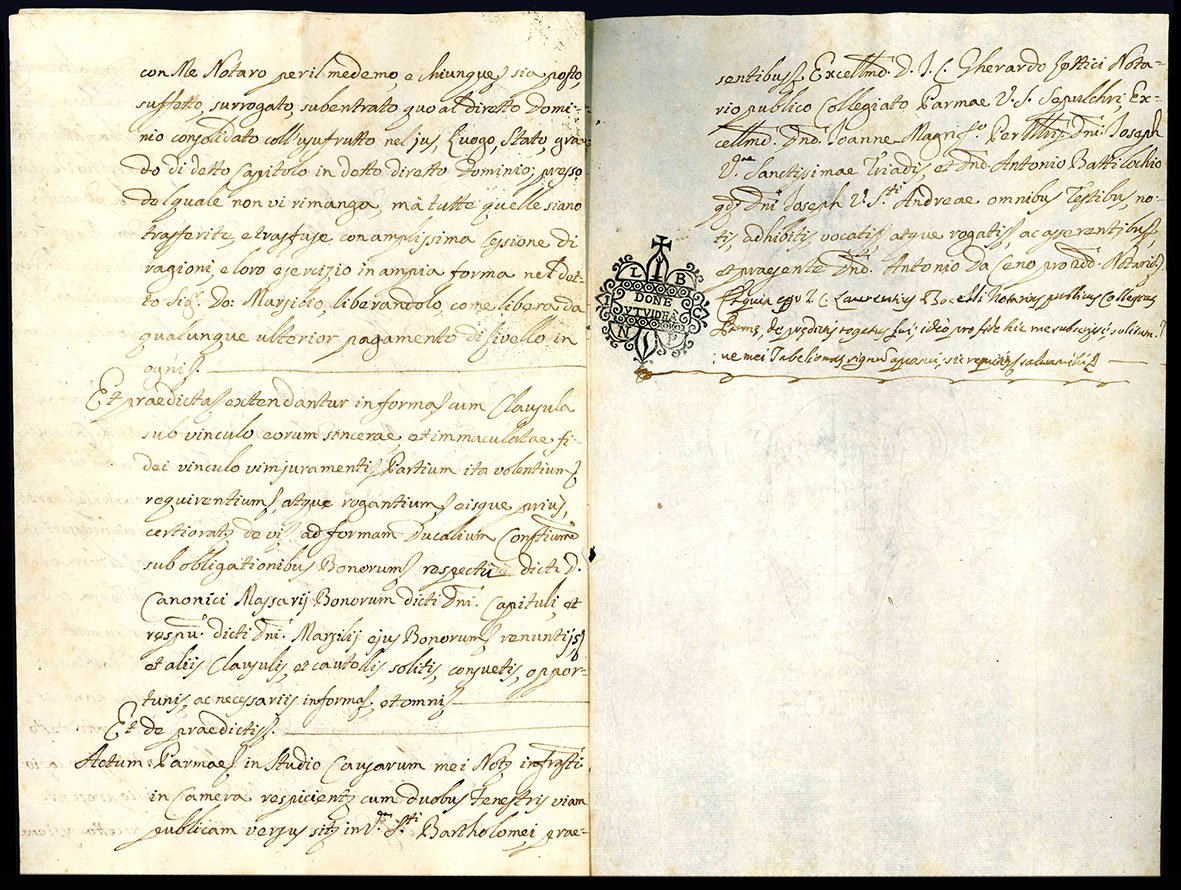 con Me Notaro per il medemo, e chiunque sia posto,
suffetto, surrogato, subentrato quo al diretto Domi-
nio consolidato coll'usufrutto nel jus, Luogo, Stato, gra-
do di detto Capitolo in detto diretto Dominio, presso
del quale non vi rimanga, mà tutte quelle siano
trasferite, e trasfuse con amplissima Cessione di
ragioni, e loro esercizio in ampia forma nel det-
to Sigr. Do: Marsilio, liberandolo, come libera da
qualunque ulterior pagamento di livello in
ogni
Et praedicta extendantur in forma cum Clausula
sub vinculo eorum sincerae, et immaculatae fi-
dei vinculo vim juramenti Partium ita volentium,
requirentium, atque rogantium, eisque prius,
certiorat de vi ad formam Ducalium Constium
sub obligationibus Bonorum respectu dicti D.
Canonici Massarij Bonorum dicti Dni. Capituli, et
respu. dicti Dni. Marsilij ejus Bonorum renuntijs
et aliis Clausulis, et cautellis solitis, consuetis, oppor-
tunis, ac necessariis in forma, et omni
Et de praedictis
Actum Parmae in Studio Causarum mei Not infrasti
in Camera respicient cum duobus Fenestris viam
publicam versus sit in Va. Sti Bartholomei, prae-
sentibus Excellmo. D. J. C. Gherardo Nota-
rio publico Collegiato Parmae V. S. Sepulchri, Ex-
cellmo. Dno. Joanne Magri Dni. Joseph
Vae. Sanctissimae Triadis, et Dno. Antonio Batticochio
qd. Dni Joseph V. Sti Andreae omnibus Testibus no-
tis, adhibitis vocatis atque rogatis, ac asserentibus,
et praesente Dno. Antonio Da Ceno pro 2do. Notario
L I B
DONE
1 VTVIDEA C
N P
Et quia ego J. C. Laurentius Notarius publicus Collegiatus
Parmae, de praedictis rogatus fui, ideo pro fide hic me subscripsi, solitum-
que mei Tabellionatus signum apposui, sic requisitus salvam